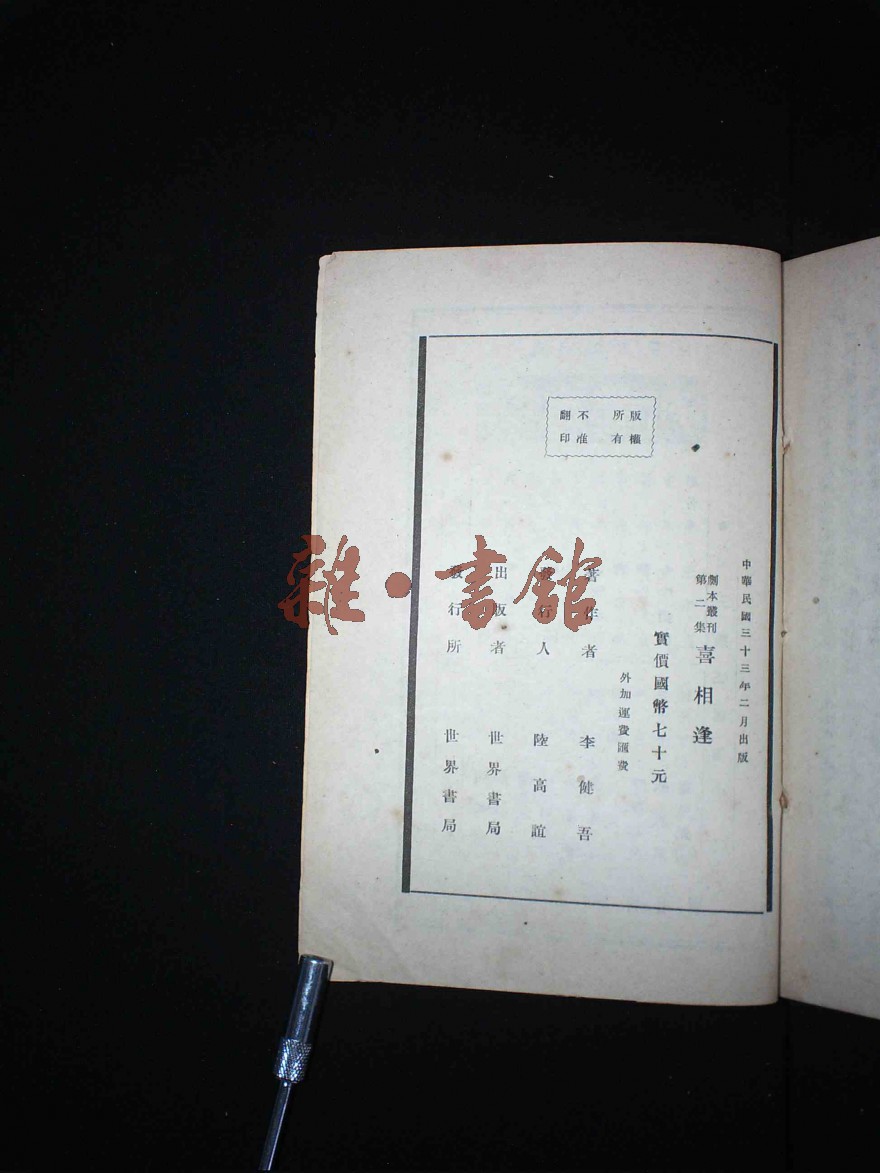 版權所有
不准翻印
中華民國三十三年二月出版
劇本叢刊
第二集
喜相逢
實價國幣七十元
外加運費匯費
著作者 李健吾
發行人 陸高誼
出版者 世界書局
發行所 世界書局
雜·書館